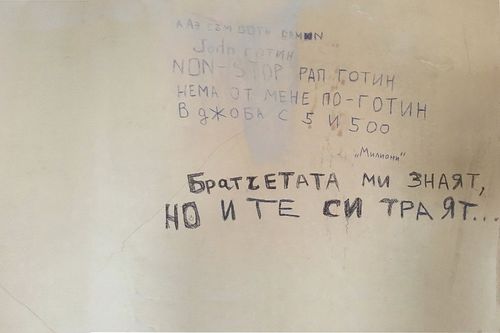 ААЗ СЪМ ВОТЬ
John ГОТИН
NON-STOP РАП ГОТИН
НЕМА ОТ МЕНЕ ПО-ГОТИН
В ДЖОБА С 5 И 500
„Милиони"
БратчЕТАТА МИ ЗНАЯТ,
НО И ТЕ СИ ТРАЯТ...